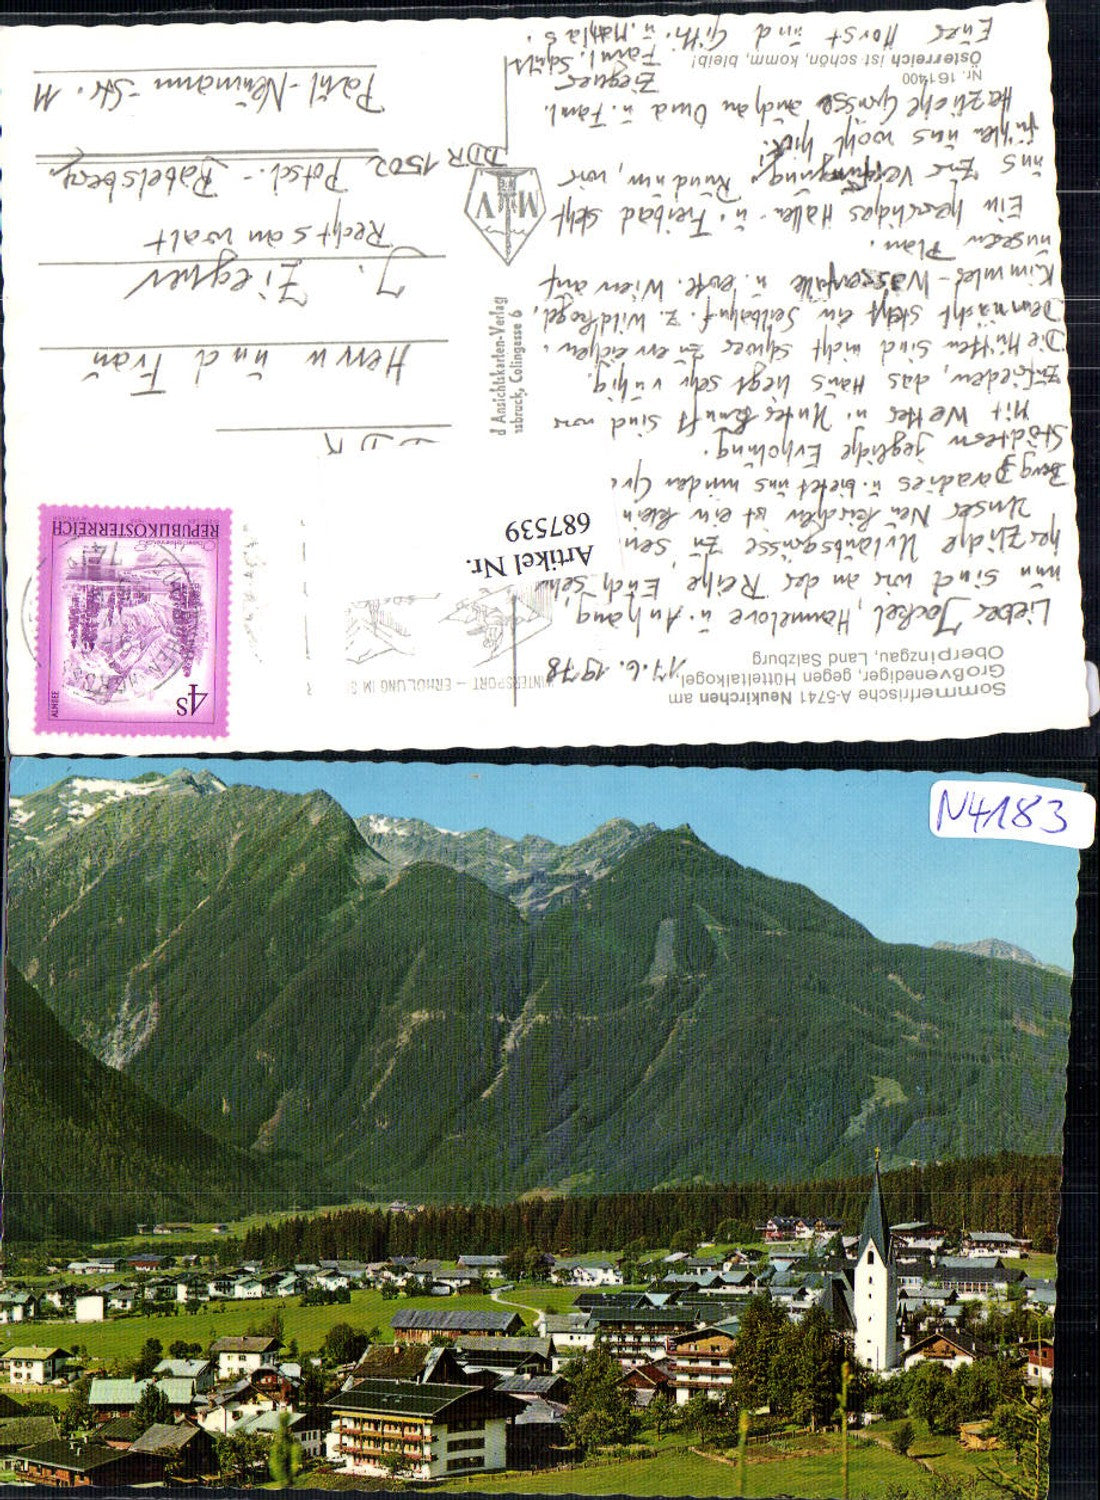 Sommerfrische A-5741 Neukirchen am
Großvenediger, gegen Hütteltalkogel,
Oberpinzgau, Land Salzburg
11.6.1978
Lieber Jockel, Hannelore u. Anhang,
nun sind wir an der Reihe, Euch sehr
herzliche Urlaubsgrüsse zu sen
Unser Neukirchen ist ein klein
Bergparadies u. bietet uns müden Gr
Städtern jegliche Erholung.
Mit Wetter u. Unterkunft sind wir
zufrieden, das Haus liegt sehr ruhig.
Die Hütten sind nicht schwer zu erreichen.
Demnächst steht ein Seilbahnf. z. Wildkogel,
Krimmler-Wasserfälle u. evtl. Wien auf
unserem Plan.
Ein herrliches Hallen- u. Freibad steht
uns zur Verfügung. Rundum, wir
fühlen uns wohl hier!
Herzliche Grüsse auch an Oma u. Faml.
Ziegner
Faml. Schulz
u. Mathias.
Eure Horst und Gitti
Nr. 161400
Österreich ist schön, komm, bleib!
WINTERSPORT – ERHOLUNG IM S
Artikel Nr.
687539
d Ansichtskarten-Verlag
nsbruck, Colingasse 6
MV
4S
ALMSEE
REPUBLIK ÖSTERREICH
DDR
Herrn und Frau
J. Ziegner
Rechtsanwalt
DDR 1502 Potsd.-Babelsberg
Paul-Neumann-Str. 11
N4183